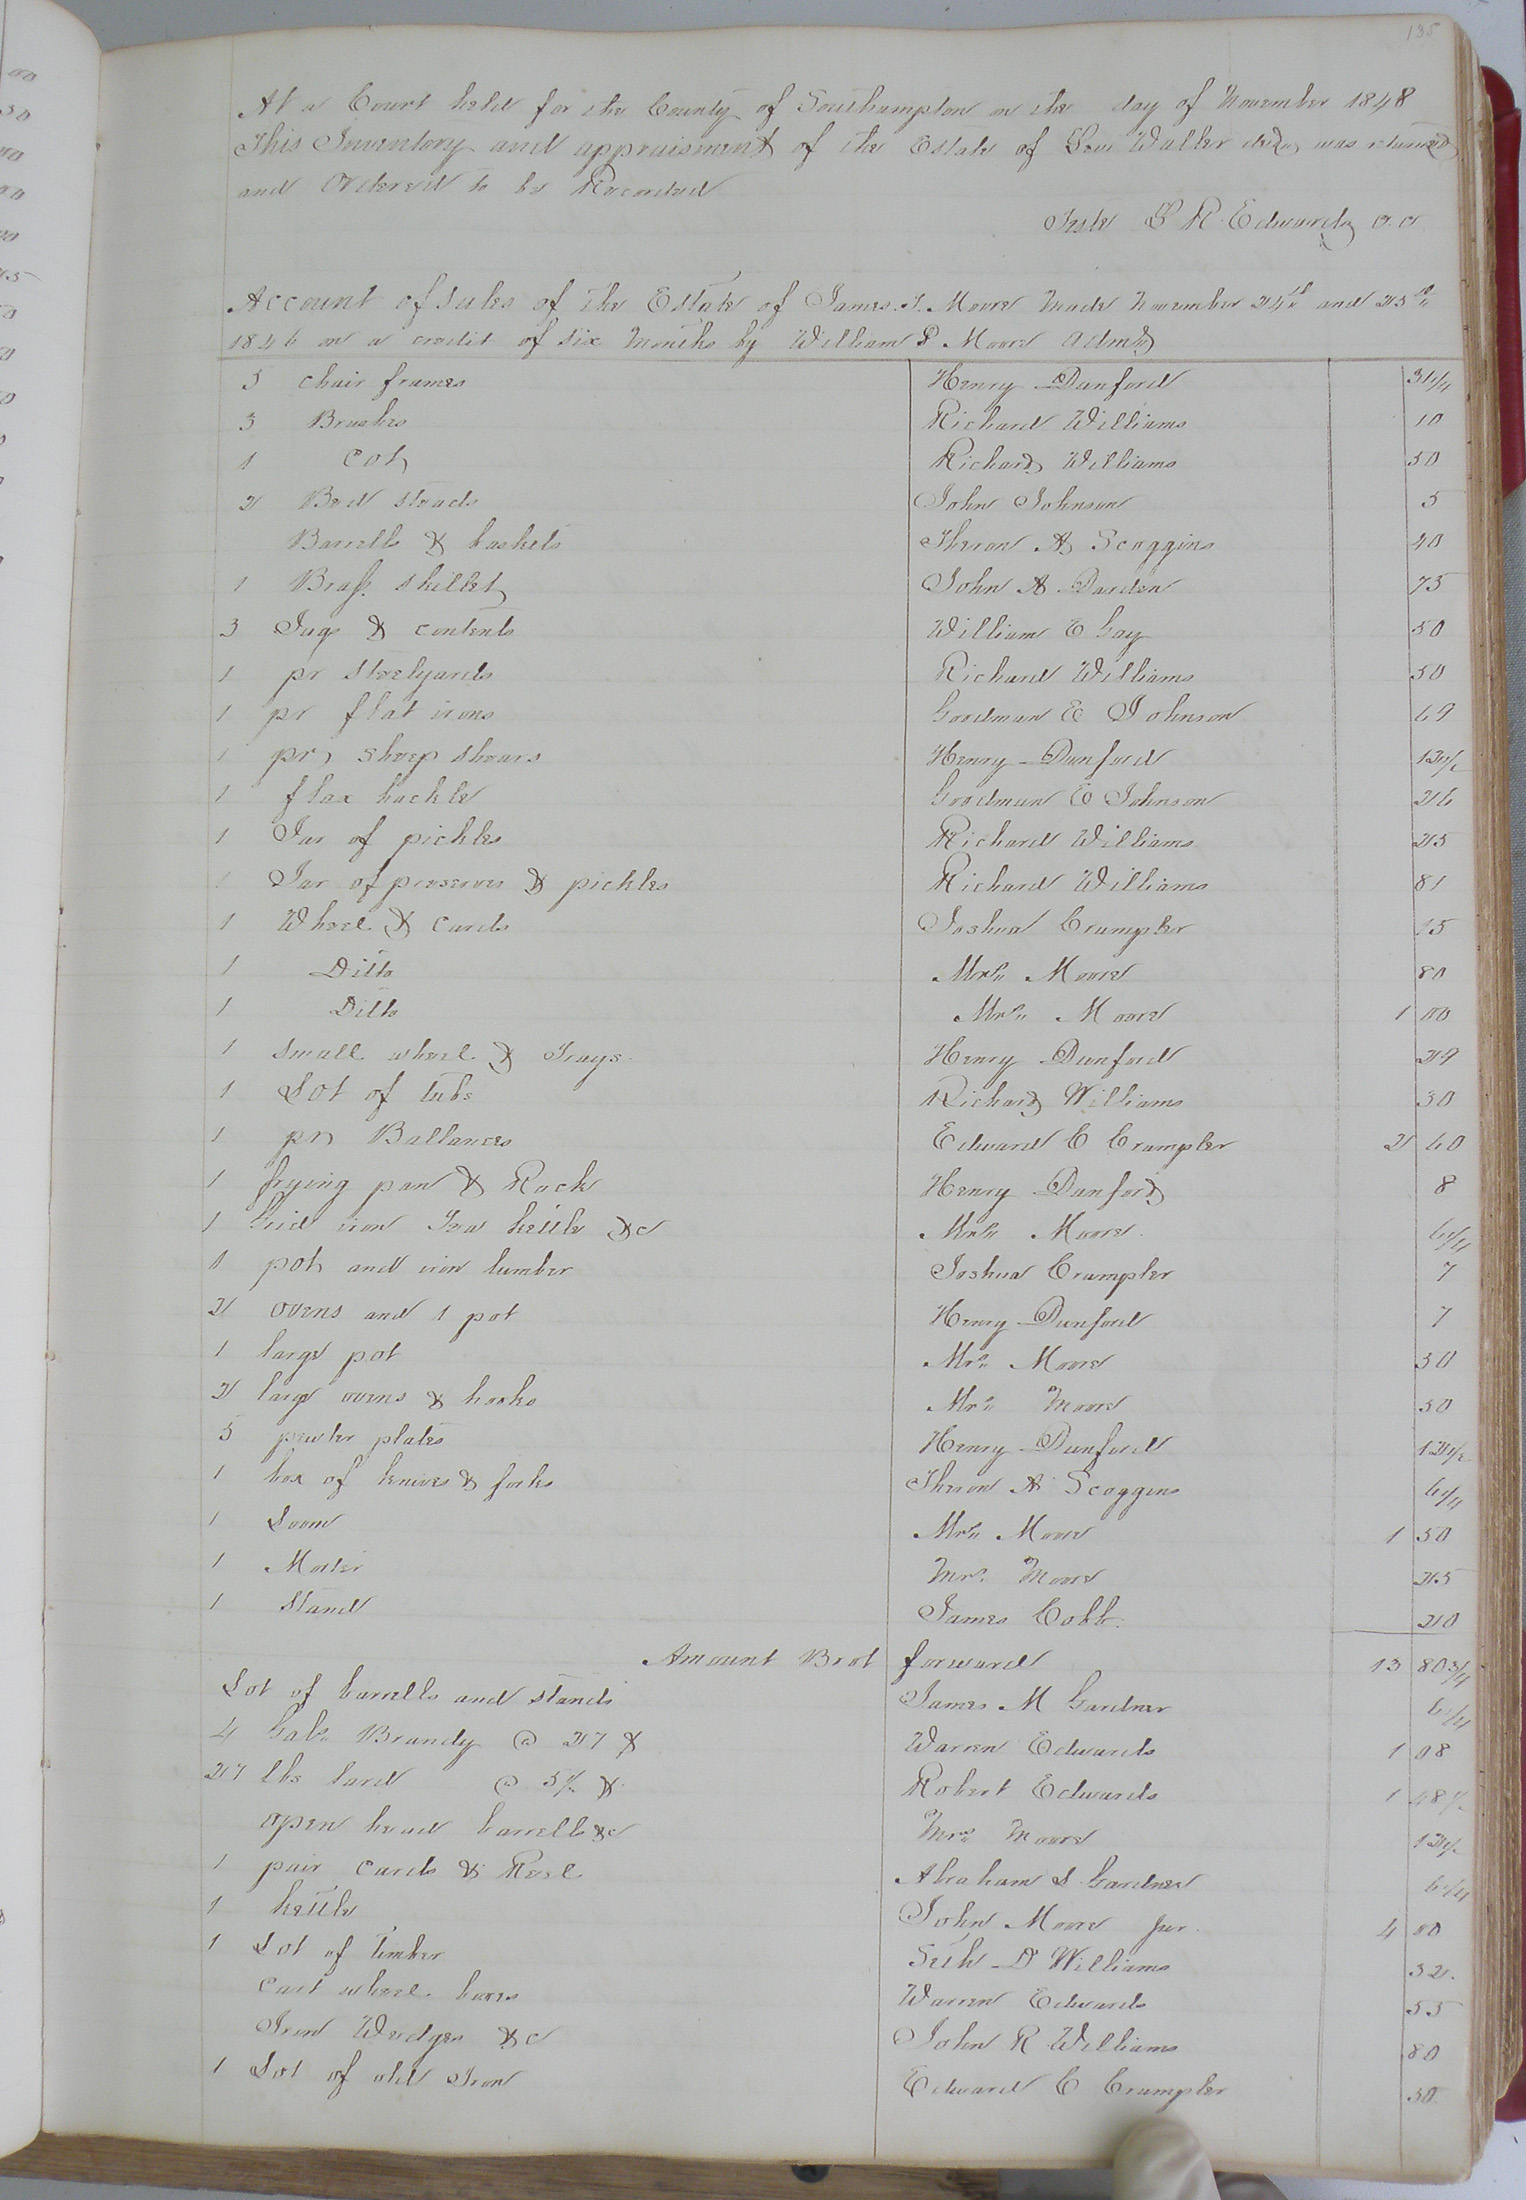 135
At a Court held for the County of Southampton on the day of November 1848
This Inventory and appraisment of the Estate of Waller decd, was returned
and Ordered to be Recorded
Teste L R Edwards c. c
Account of Sales of the Estate of James. T. Moore made November 24th and 25th
1846 on a credit of six Months by William P Moore Admr
5 chair frames Henry Danford 31 1/4
3 Brushes Richard Williams 10
1 Cot Richard Williams 50
2 Bed steads John Johnson 5
Barrells & baskets Theron A Scoggins 40
1 Brass skillet John A Darden 75
3 Jugs & contents William E Gay 50
1 pr steelyards Richard Williams 50
1 pr flat irons Goodman E Johnson 69
1 pr, sheep shears Henry Danford 12 1/2
1 flax hackle Goodman E Johnson 26
1 Jar of pickles Richard Williams 25
1 Jar of preserves & pickles Richard Williams 81
1 Wheel & cards Joshua Crumpler 15
1 Ditto Mrs. Moore 80
1 Ditto Mrs. Moore 1 00
1 small wheel & Trays Henry Danford 29
1 Lot of tubs Richard Williams 30
1 pr Ballances Edward C Crumpler 2 60
1 frying pan & Rack Henry Danford 8
1 Grid iron Tea kettle &c Mrs. Moore 6 1/4
1 pot and iron lumber Joshua Crumpler 7
2 ovens and 1 pot Henry Danford 7
1 large pot Mrs. Moore 30
2 large ovens & hooks Mrs. Moore 50
5 pewter plates Henry Danford 12 1/2
1 box of knives & forks Theron A Scoggins 6 1/4
1 Loom Mrs. Moore 1 50
1 Morter Mrs. Moore 25
1 Stand James Cobb 20
Amount Brot forward 13 80 3/4
Lot of barrells and stands James M Gardner 6 1/4
4 Gals. Brandy @ 27 ¢ Warren Edwards 1 08
27 lbs lard @ 5 1/2 ¢ Robert Edwards 1 48 1/2
open head barrells &c Mrs. Moore 12 1/2
1 pair cards & Reel Abraham S Gardner 6 1/4
1 kettle John Moore jur. 4 00
1 Lot of timber Seth D Williams 32
Cart wheel boxes Warren Edwards 55
Iron Wedges &c John R Williams 80
1 Lot of old Iron Edward C Crumpler 50